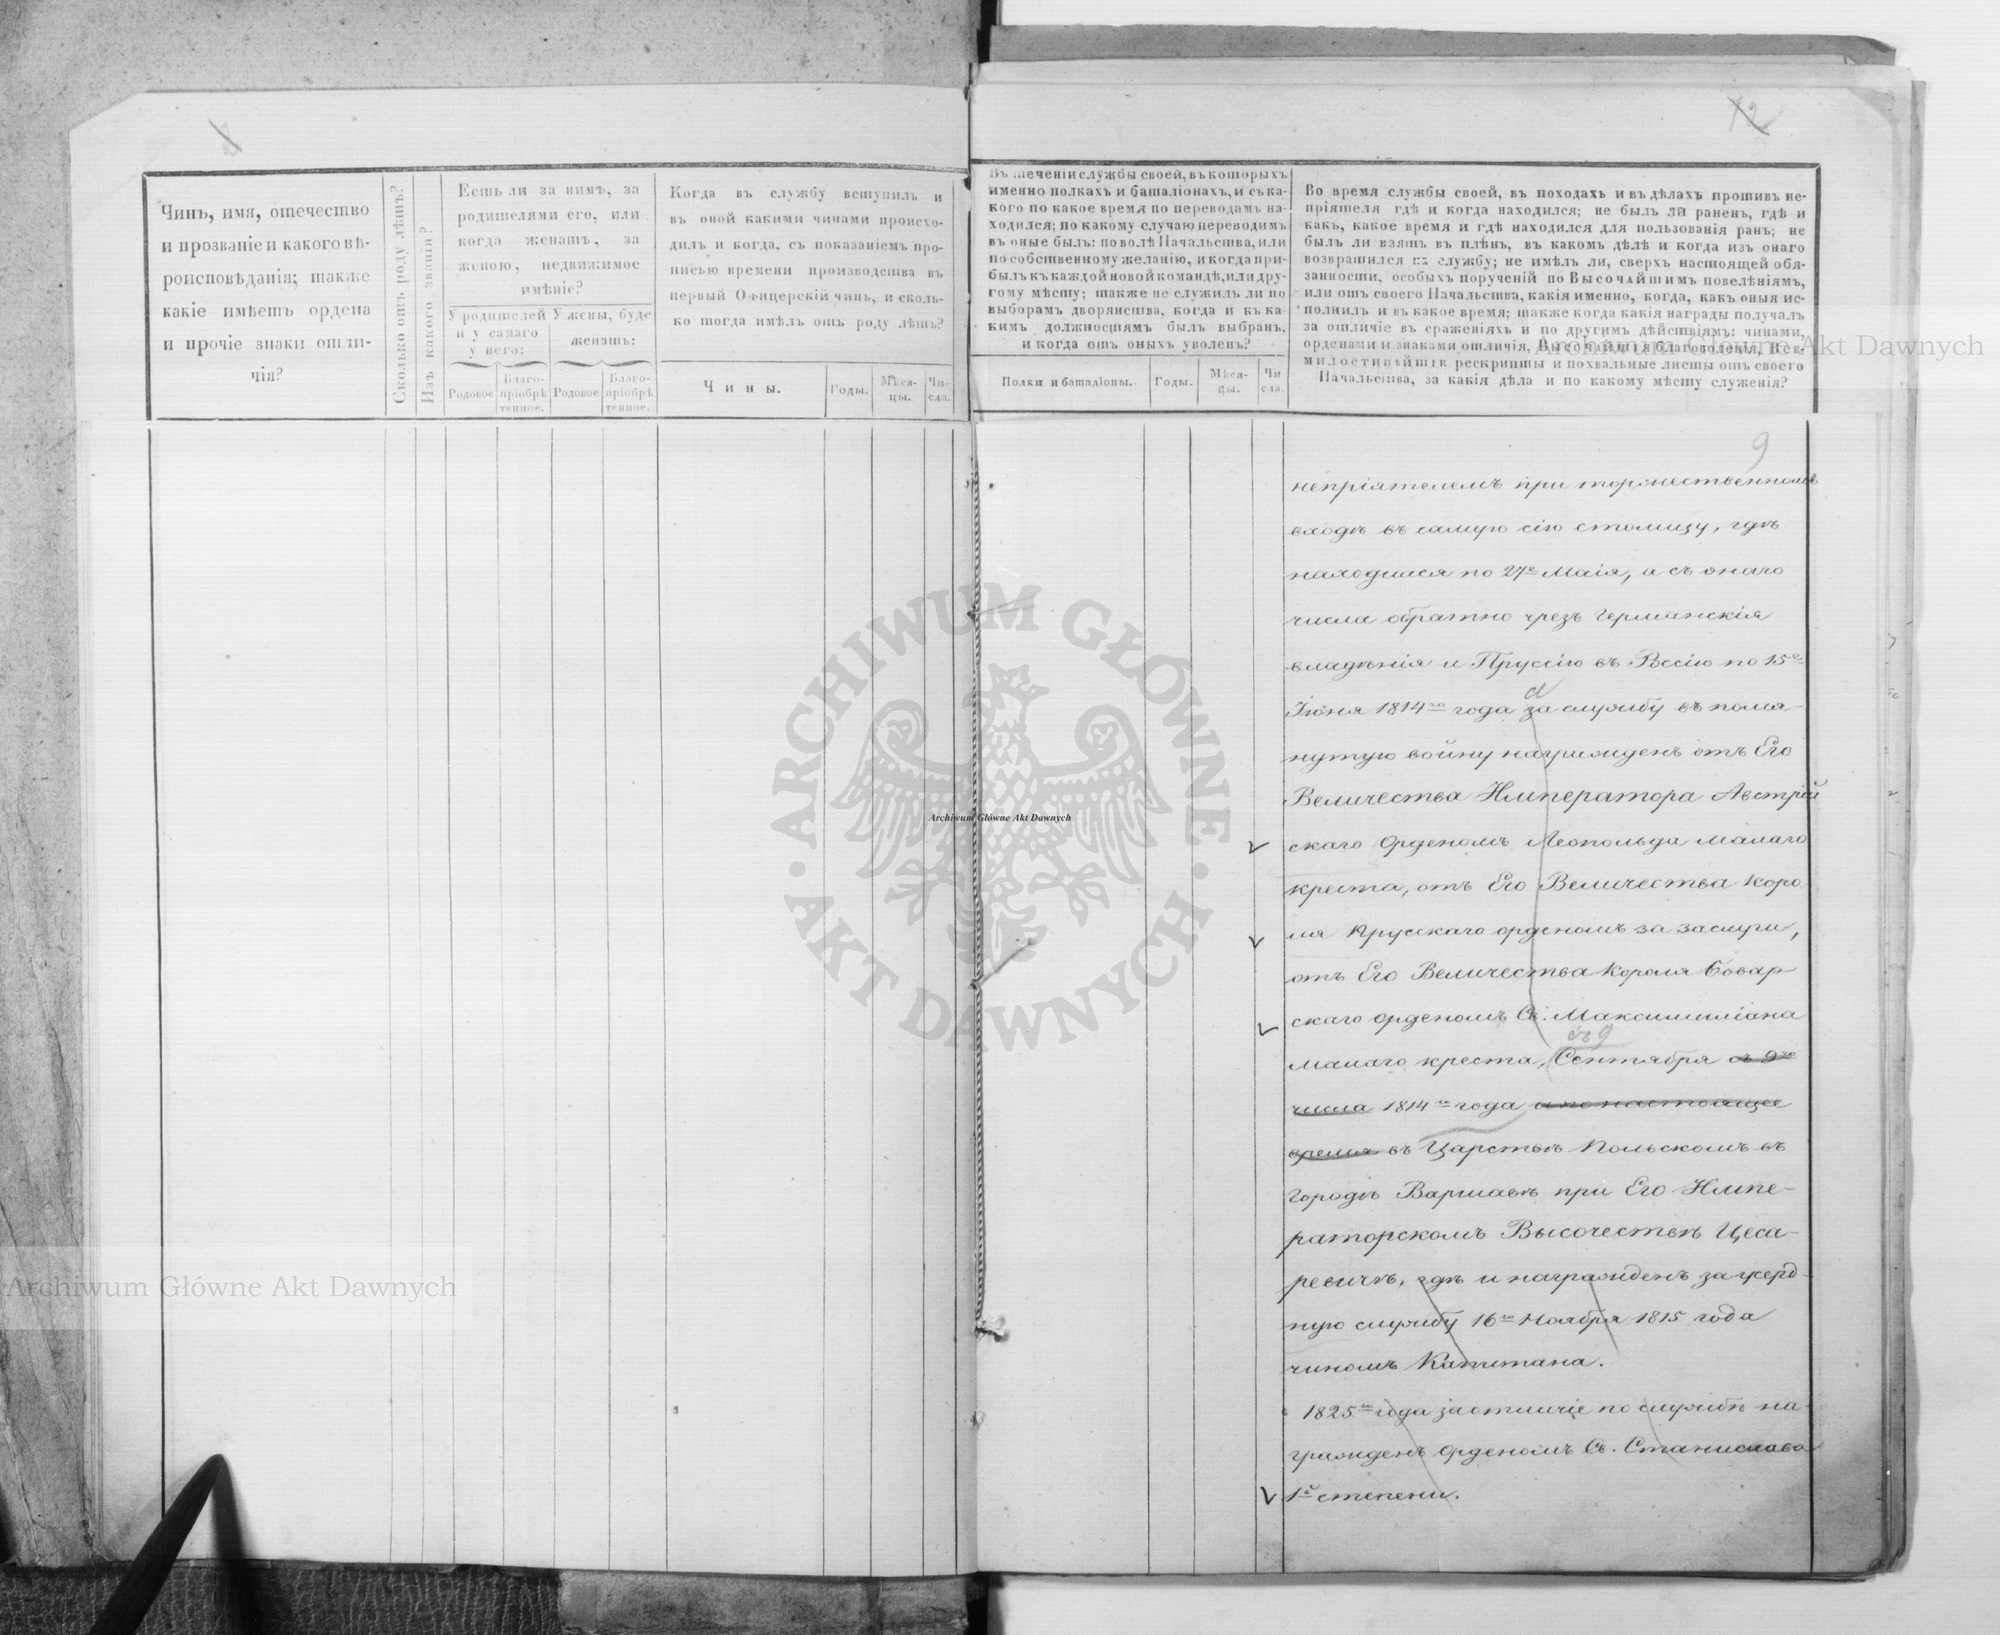 12
Чинъ, имя, отечество
и прозваніе и какого вѣ-
роисповѣданія; также
какіе имѣетъ ордена
и прочіе знаки отли-
чія?
Сколько отъ роду лѣтъ?
Изъ какого званія?
Есть ли за нимъ, за
родителями его, или
когда женатъ, за
женою, недвижимое
имѣніе?
У родителей
и у самаго
у него:
У жены, буде
женатъ:
Родовое
Благо-
пріобрѣ
тенное.
Родовое
Благо-
пріобрѣ
тенное.
Когда въ службу вступилъ и
въ оной какими чинами происхо-
дилъ и когда, съ показаніемъ про-
писью времени производства въ
первый Офицерскій чинъ, и сколь-
ко тогда имѣлъ отъ роду лѣтъ?
Чины.
Годы.
Мѣся-
цы.
Чи-
сла.
Въ теченіи службы своей, въ которыхъ
именно полкахъ и баталіонахъ, и съ ка-
кого по какое время по переводамъ на-
ходился; по какому случаю переводимъ
въ оные былъ: по волѣ Начальства, или
по собственному желанію, и когда при-
былъ къ каждой новой командѣ, или дру-
гому мѣсту; также не служилъ ли по
выборамъ дворянства, когда и къ ка-
кимъ должностямъ былъ выбранъ,
и когда отъ оныхъ уволенъ?
Полки и баталіоны.
Годы.
Мѣся-
цы.
Чи
сла.
Во время службы своей, въ походахъ и въ дѣлахъ противъ не-
пріятеля гдѣ и когда находился; не былъ ли раненъ, гдѣ и
какъ, какое время и гдѣ находился для пользованія ранъ; не
былъ ли взятъ въ плѣнъ, въ какомъ дѣлѣ и когда изъ онаго
возвратился на службу; не имѣлъ ли, сверхъ настоящей обя-
занности, особыхъ порученій по Высочайшимъ повелѣніямъ,
или отъ своего Начальства, какія именно, когда, какъ оныя ис-
полнилъ и въ какое время; также когда какія награды получалъ
за отличіе въ сраженіяхъ и по другимъ дѣйствіямъ: чинами,
орденами и знаками отличія, Высочайшія благоволенія, Все-
милостивѣйшіе рескрипты и похвальные листы отъ своего
Начальства, за какія дѣла и по какому мѣсту служенія?
9
непріятелемъ при торжественномъ
входѣ въ самую сію столицу, гдѣ
находился по 27е Маія, а съ онаго
числа обратно чрезъ Германскія
владѣнія и Пруссію въ Рссію по 15е
Іюня 1814го года за службу въ помя-
нутую войну награжденъ отъ Его
Величества Императора Австрій
скаго Орденомъ Леопольда малаго
креста, отъ Его Величества Коро
ля Прусскаго орденомъ за заслуги,
отъ Его Величества Короля Бовар-
скаго орденомъ Св. Максимиліана
съ 9
малаго креста, Сентября съ 9го
числа 1814го года и по настоящее
время въ Царствѣ Польскомъ въ
городѣ Варшавѣ при Его Импе-
раторскомъ Высочествѣ Цеса-
ревичѣ, гдѣ и награжденъ за усерд-
ную службу 16го Ноября 1815 года
чиномъ Капитана.
1825го года за отличіе по службѣ на-
гражденъ Орденомъ Св. Станислава
1й степени.
ARCHIWUM GŁÓWNE AKT DAWNYCH
Archiwum Główne Akt Dawnych
Archiwum Główne Akt Dawnych
Archiwum Główne Akt Dawnych